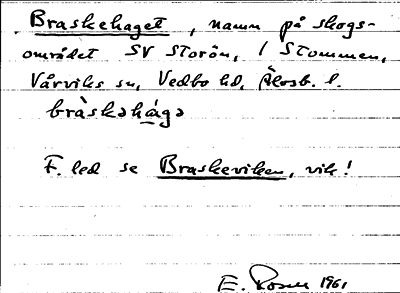 Braskehaget, namn på skogs-
området SV Storön, i Stommen,
Vårviks sn, Vedbo hd, Älvsb. l.
bràskəhágə
F. led se Braskeviken, vik!
E. 1961